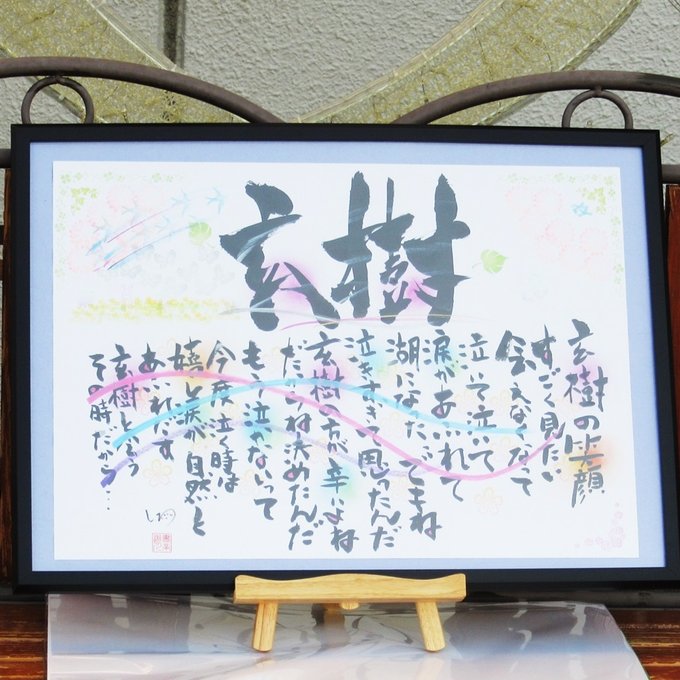 玄樹
玄樹の笑顔
すごく見たい
会えなくなって
泣いて泣いて
涙があふれて
湖になった
泣きすぎて思ったんだ
玄樹の方が辛いよね
だからね決めたんだ
もう泣かないって
今度泣く時は
嬉し涙が自然と
あふれだす
玄樹と会う
その時だから…